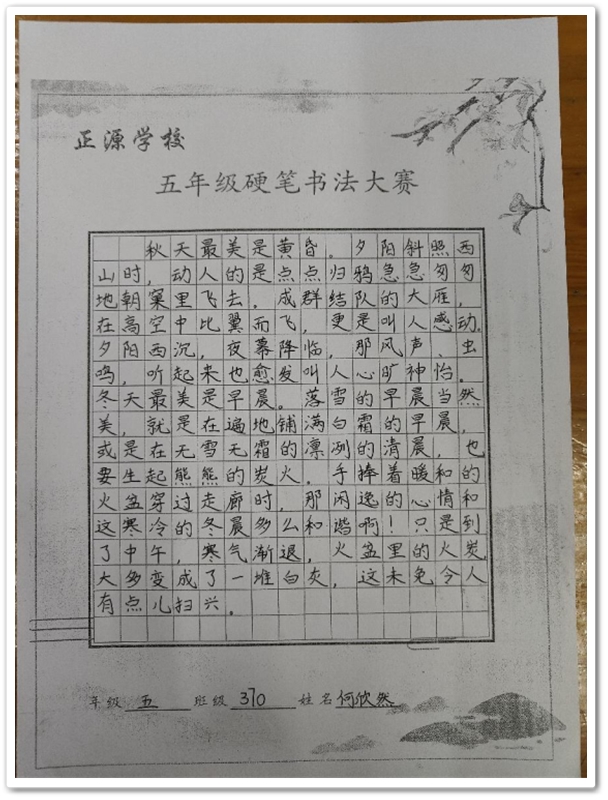 正源学校
五年级硬笔书法大赛
秋天最美是黄昏。夕阳斜照西
山时，动人的是点点归鸦急急匆匆
地朝窠里飞去。成群结队的大雁，
在高空中比翼而飞，更是叫人感动。
夕阳西沉，夜幕降临，那风声、虫
鸣，听起来也愈发叫人心旷神怡。
冬天最美是早晨。落雪的早晨当然
美，就是在遍地铺满白霜的早晨，
或是在无雪无霜的凛冽的清晨，也
要生起熊熊的炭火。手捧着暖和的
火盆穿过走廊时，那闲逸的心情和
这寒冷的冬晨多么和谐啊！只是到
了中午，寒气渐退，火盆里的火炭
大多变成了一堆白灰，这未免令人
有点儿扫兴。
年级 五 班级 370 姓名 何欣然